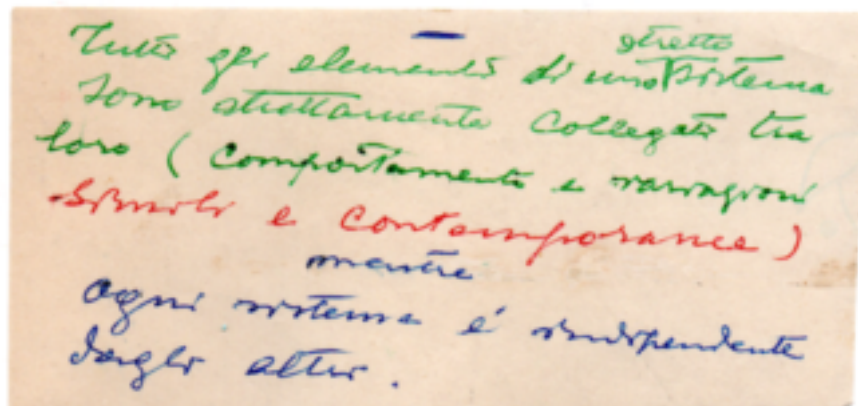 Tutti gli elementi di uno stretto sistema
sono strettamente collegati tra
loro ( comportamenti e variazioni
simili e contemporanee )
mentre
ogni sistema è indipendente
dagli altri.